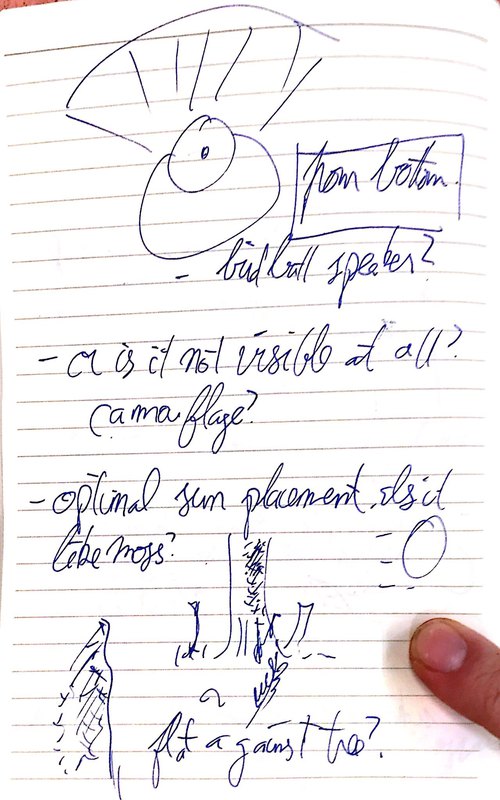 from bottom.
- bird ball speaker?
- or is it not visible at all?
camouflage?
- optimal sun placement, is it
like moss?
flat against tree?